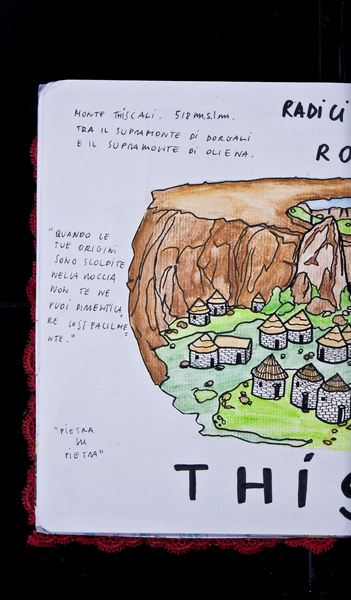 MONTE THISCALI. 518 m.s.l.m.
TRA IL SUPRAMONTE DI DORGALI
E IL SUPRAMONTE DI OLIENA.
RADICI
RO
"QUANDO LE
TUE ORIGINI
SONO SCOLPITE
NELLA ROCCIA
NON TE NE
PUOI DIMENTICA
RE COSÌ FACILME
NTE."
"PIETRA
SU
PIETRA"
THÍS